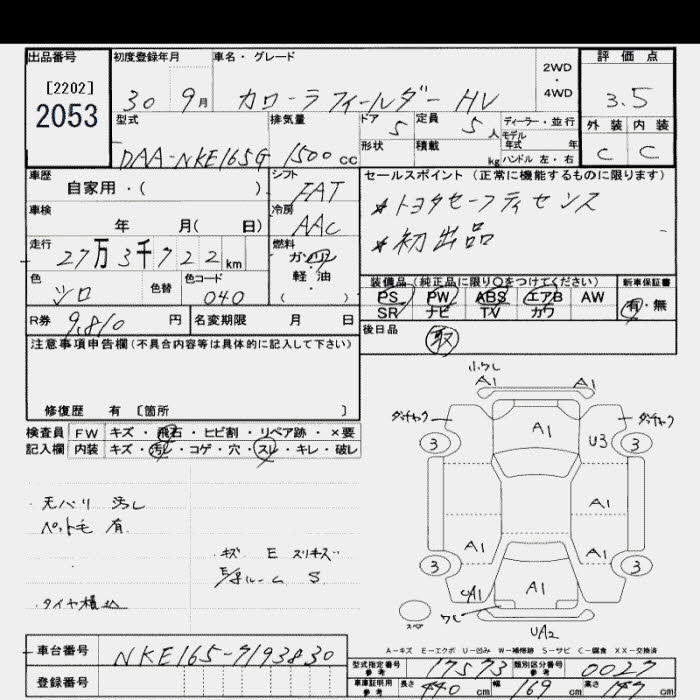 出品番号 初度登録年月 車名・グレード 2WD・4WD 評価点
[2202]
2053
30 9月 カローラフィールダー HV 3.5
型式 排気量 ドア 定員 ディーラー・並行 外装 内装
5 5人 モデル年式 年
DAA-NKE165G 1500cc 形状 積載 kg ハンドル 左・右 C C
車歴 シフト セールスポイント(正常に機能するものに限ります)
自家用・( ) FAT
*トヨタセーフティセンス
車検 冷房
年 月( 日) AAC
*初出品
走行 燃料
27万3千722km ガソリン・軽・油
( )
装備品(純正品に限り○をつけてください) 新車保証書
色 色替 色コード
シロ 040
PS PW ABS エアB AW 有・無
SR ナビ TV カワ
R券 9,810円 名変期限 月 日
後日品 取
注意事項申告欄(不具合内容等は具体的に記入して下さい)
修復歴 有 〔箇所 〕
検査員 FW キズ・飛石・ヒビ割・リペア跡・×要
記入欄 内装 キズ・汚レ・コゲ・穴・スレ・キレ・破レ
A1 A1
A1
3 U3 3
A1
A1 A1
3 3
A1
UA2
天バリ 汚レ
ペット毛 有
キズ E スリキズ
S
タイヤ積込
スペア
A-キズ E-エクボ U-凹み W-補修跡 S-サビ C-腐食 XX-交換済
車台番号 NKE165-7193830
登録番号
型式指定番号 参考 17573 類別区分番号 参考 0027
車庫証明用 参考 長さ 440cm 幅 169cm 高さ 147cm